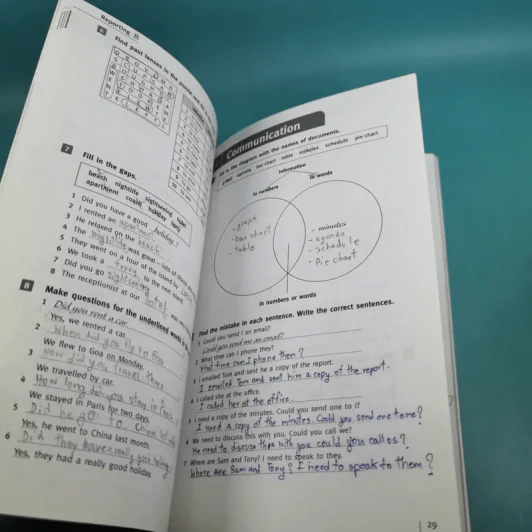 Reporting 8
6 Find past tenses in the puzzle and
7 Fill in the gaps.
beach nightlife sightseeing hotel
apartment coach holiday ferry
1 Did you have a good holiday?
2 I rented an apartment
3 He relaxed on the beach.
4 The nightlife was great
5 They went on a tour of the island by
6 We took a ferry to the next island.
7 Did you go sightseeing
8 The receptionist at our hotel was
8 Make questions for the underlined words
1 Did you rent a car
Yes, we rented a car.
2 When did you fly to Goa
We flew to Goa on Monday.
3 How did you travel
We travelled by car.
4 How long do you stay in Paris
We stayed in Paris for two days.
5 Did he go to China last
Yes, he went to China last month.
6 Did they have a really good holiday
Yes, they had a really good holiday.
Communication
the diagram with the names of documents.
graph agenda bar chart table minutes schedule pie chart
Information
in numbers
in words
- graph
- bar chart
- table
- minutes
- agenda
- schedule
- Pie chart
in numbers or words
Find the mistake in each sentence. Write the correct sentences.
1 Could you send I an email?
Could you send me an email?
2 What time can I phone they?
What time can I phone them?
3 I emailed Tom and sent he a copy of the report.
I emailed Tom and sent him a copy of the report.
4 I called she at the office.
I called her at the office.
5 I need a copy of the minutes. Could you send one to I?
I need a copy of the minutes. Could you send one to me?
6 We need to discuss this with you. Could you call we?
We need to discuss this with you could you call us?
7 Where are Sam and Tony? I need to speak to they.
Where are Sam and Tony? I need to speak to them?
29